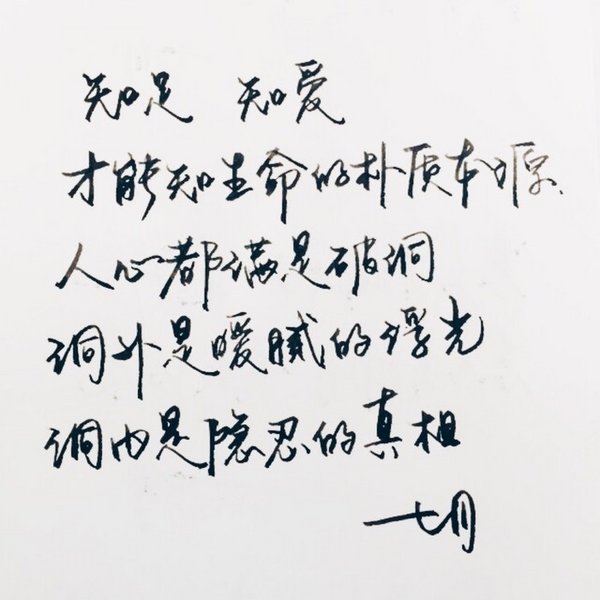 知足 知爱
才能知生命的朴质本源、
人心都满是破洞
洞外是暧腻的浮光
洞内是隐忍的真相
七月